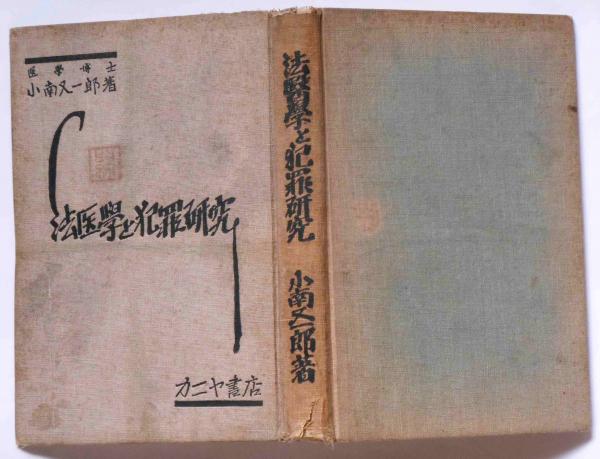 医學博士
小南又一郎著
法医學と犯罪研究
カニヤ書店
法醫學と犯罪研究
小南又一郎著